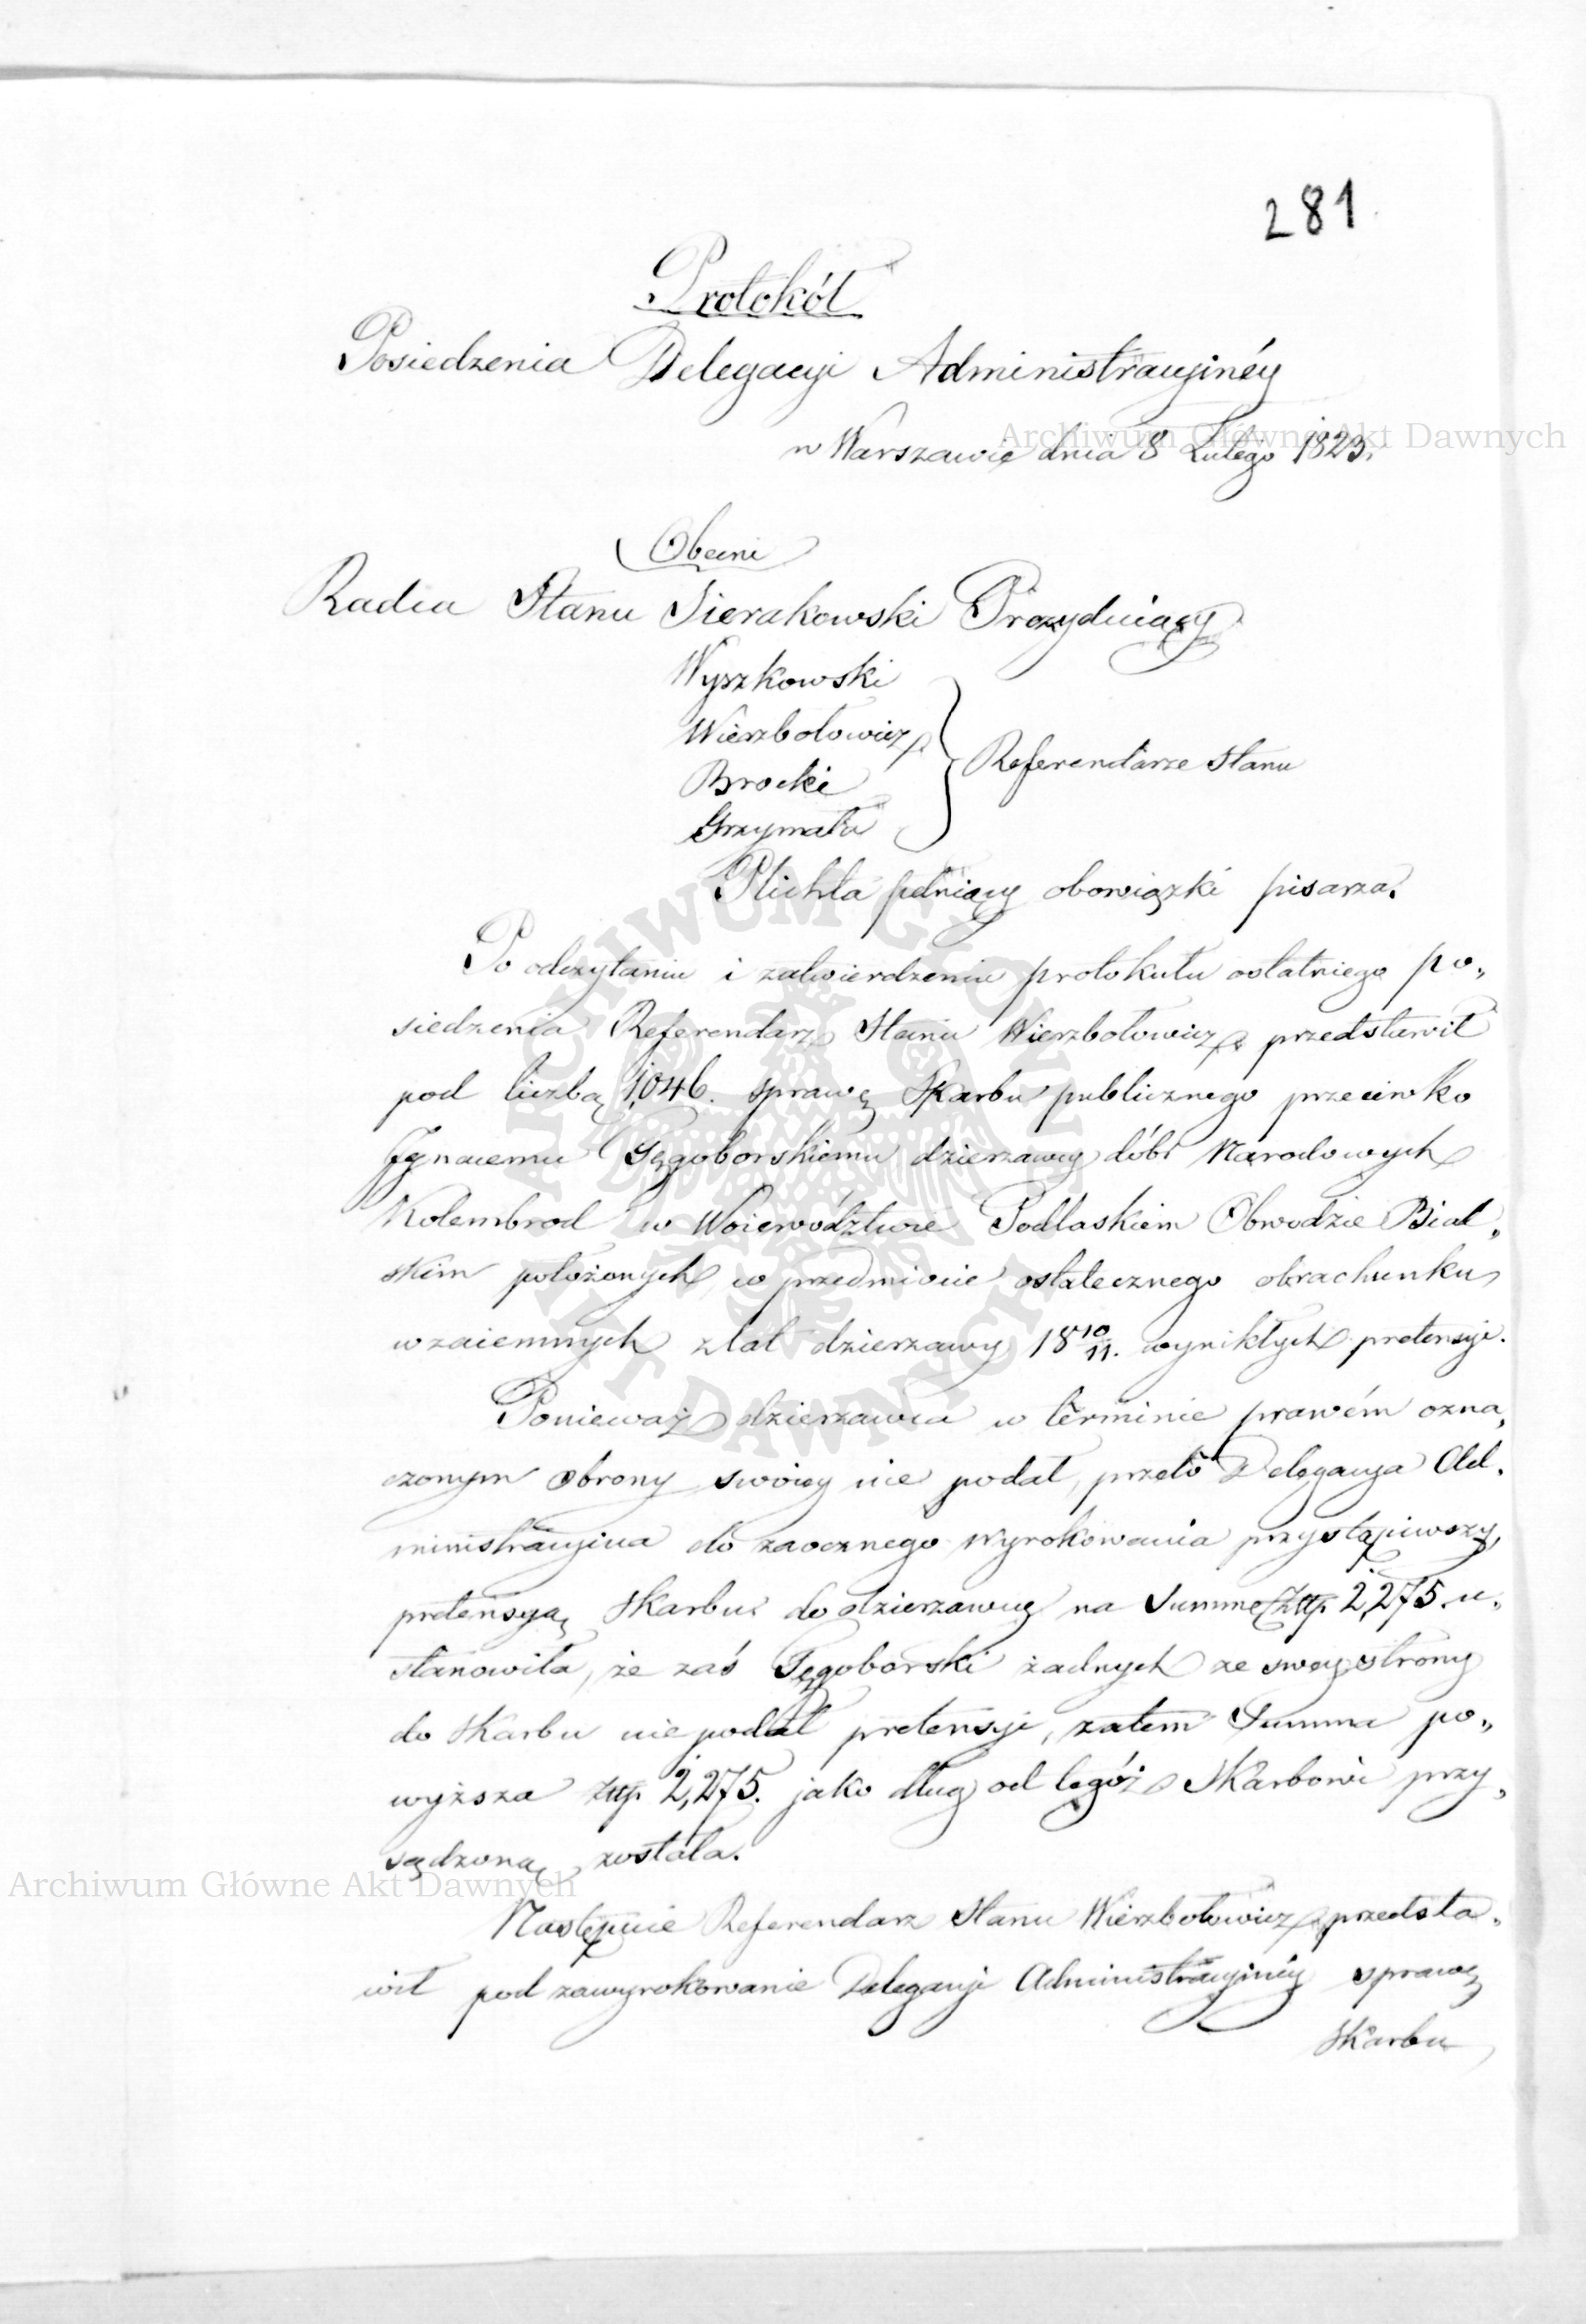 281
Protokół
Posiedzenia Delegacyi Administracyinéy
Archiwum Główne Akt Dawnych
w Warszawie dnia 8 Lutego 1823.
Obecni
Radca Stanu Sierakowski Prezyduiący
Wyszkowski
Wierzbołowicz
Referendarze Stanu
Brocki
Grzymała
Plichta pełniący obowiązki pisarza.
Po odczytaniu i zatwierdzeniu protokułu ostatniego po„
siedzenia Referendarz Stanu Wierzbołowicz przedstawił
pod liczbą 1,046. sprawę Skarbu publicznego przeciwko
Ignacemu Tęgoborskiemu dzierzawcy dóbr Narodowych
Kolembrod w Woiewództwie Podlaskiém Obwodzie Bial„
skim położonych, w przedmiocie ostatecznego obrachunku
wzaiemnych z lat dzierzawy 18 10/11. wynikłych pretensyi.
Ponieważ dzierzawca w terminie prawém ozna„
czonym obrony swoiey nie podał, przeto Delegacya Ad„
ministracyina do zaocznego wyrokowania przystąpiwszy,
pretensyą Skarbu do dzierzawcy na Summę Złłp. 2,275. u„
stanowiła, że zaś Tęgoborski żadnych ze swey strony
do Skarbu nie podał pretensyi, zatem Summa po„
wyższa Złłp. 2,275. jako dług od tegóż Skarbowi przy„
sądzoną została.
Archiwum Główne Akt Dawnych
Następnie Referendarz Stanu Wierzbołowicz przedsta„
wił pod zawyrokowanie Delegacyi Administracyinéy sprawę
Skarbu
ARCHIWUM GŁÓWNE AKT DAWNYCH